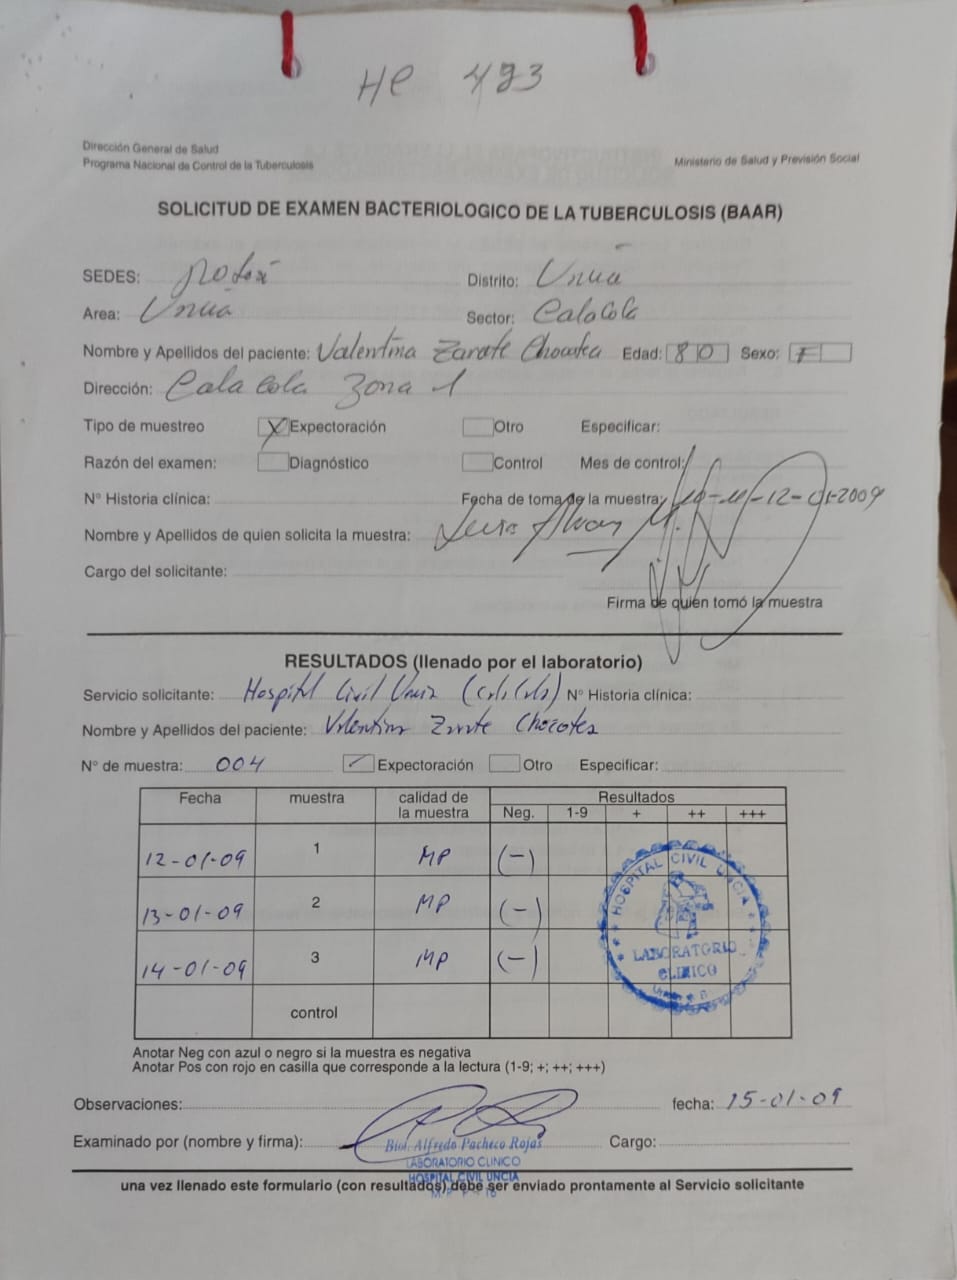 HC 493
Dirección General de Salud
Programa Nacional de Control de la Tuberculosis
Ministerio de Salud y Previsión Social
SOLICITUD DE EXAMEN BACTERIOLOGICO DE LA TUBERCULOSIS (BAAR)
SEDES: Potosí Distrito: Uncía
Area: Uncía Sector: CalaCala
Nombre y Apellidos del paciente: Valentina Zarate Chocotea Edad: 80 Sexo: F
Dirección: Cala Cala Zona 1
Tipo de muestreo X Expectoración Otro Especificar:
Razón del examen: Diagnóstico Control Mes de control:
N° Historia clínica: Fecha de toma de la muestra: -12-01-2009
Nombre y Apellidos de quien solicita la muestra:
Cargo del solicitante:
Firma de quien tomó la muestra
RESULTADOS (llenado por el laboratorio)
Servicio solicitante: Hospital Civil Uncia (Cala Cala) N° Historia clínica:
Nombre y Apellidos del paciente: Valentina Zarate Chocotea
N° de muestra: 004 ✓ Expectoración Otro Especificar:
Fecha muestra calidad de la muestra Resultados
Neg. 1-9 + ++ +++
12-01-09 1 MP (-)
13-01-09 2 MP (-)
14-01-09 3 MP (-)
control
HOSPITAL CIVIL UNCIA
LABORATORIO
CLINICO
Anotar Neg con azul o negro si la muestra es negativa
Anotar Pos con rojo en casilla que corresponde a la lectura (1-9; +; ++; +++)
Observaciones: fecha: 15-01-09
Examinado por (nombre y firma): Biol. Alfredo Pacheco Rojas Cargo:
LABORATORIO CLINICO
HOSPITAL CIVIL UNCIA
una vez llenado este formulario (con resultados) debe ser enviado prontamente al Servicio solicitante